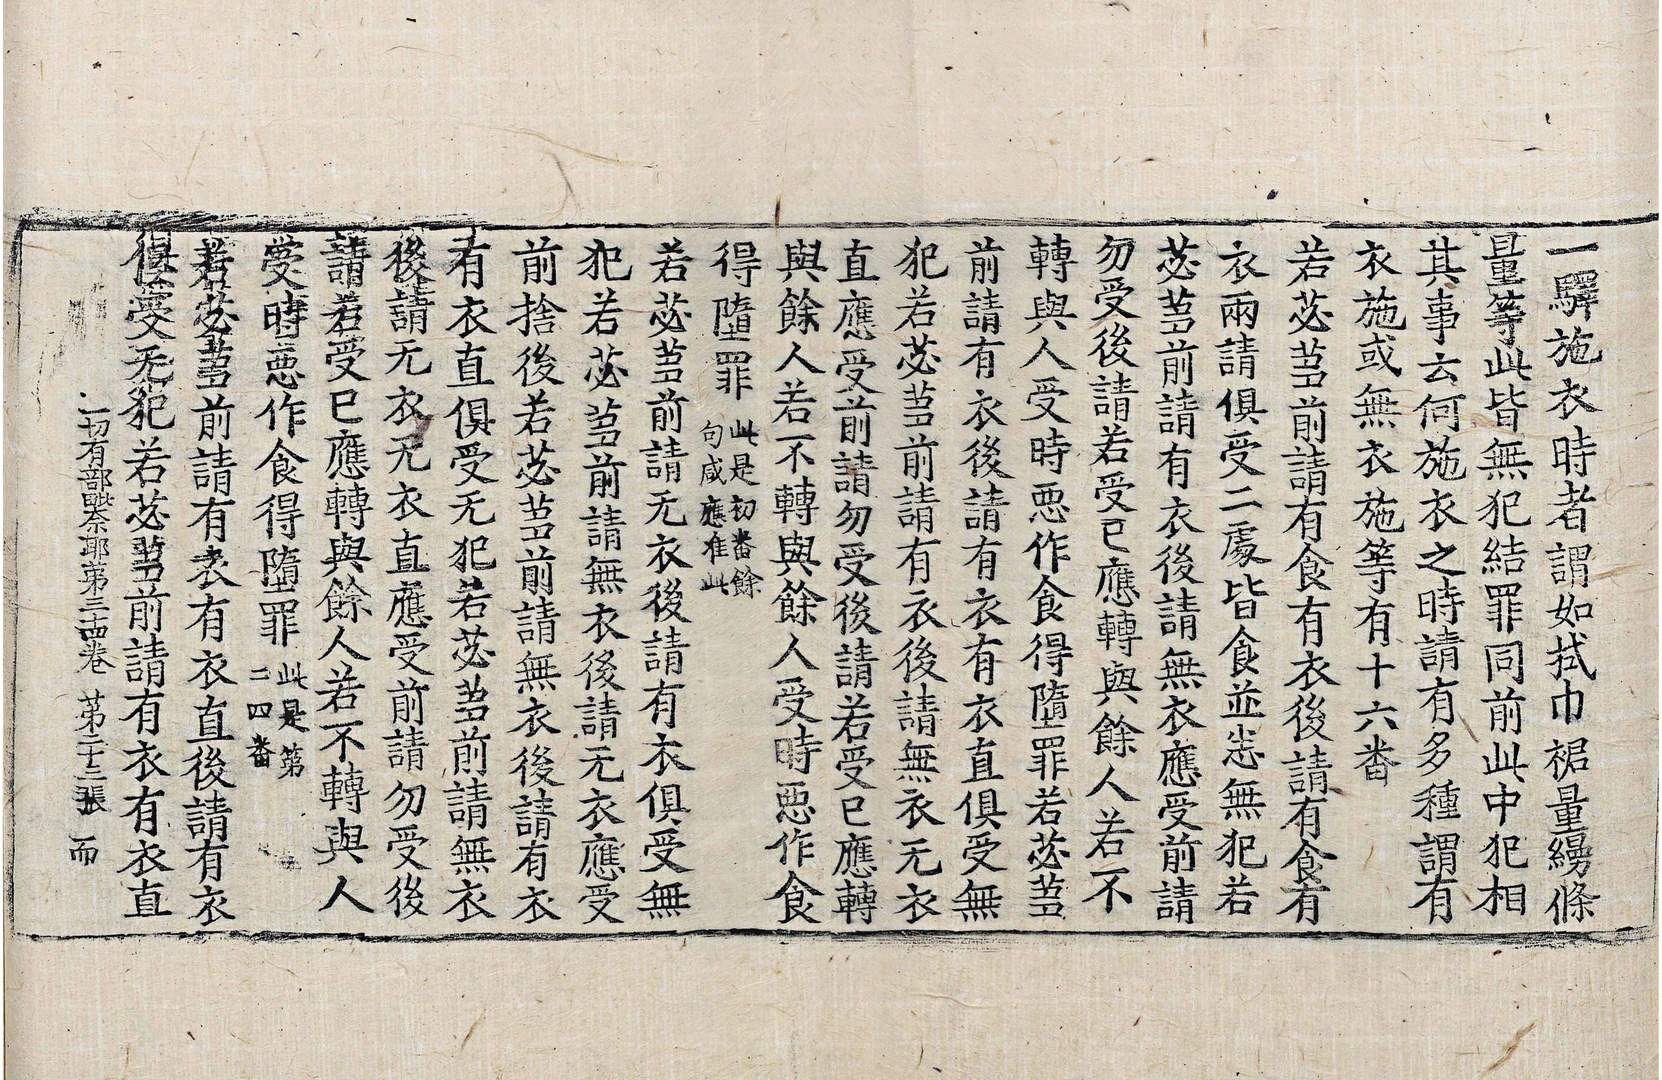 一驛施衣時者謂如拭巾裙量繓絛
量等此皆無犯結罪同前此中犯相
其事云何施衣之時請有多種謂有
衣施或無衣施等有十六番
若苾芻前請有食有衣後請有食有
衣兩請俱受二處皆食並悉無犯若
苾芻前請有衣後請無衣應受前請
勿受後請若受已應轉與餘人若不
轉與人受時惡作食得墮罪若苾芻
前請有衣後請有衣有衣直俱受無
犯若苾芻前請有衣後請無衣无衣
直應受前請勿受後請若受已應轉
與餘人若不轉與餘人受時惡作食
得墮罪 此是初番餘
句咸應准此
若苾芻前請无衣後請有衣俱受無
犯若苾芻前請無衣後請无衣應受
前捨後若苾芻前請無衣後請有衣
有衣直俱受无犯若苾芻前請無衣
後請无衣无衣直應受前請勿受後
請若受已應轉與餘人若不轉與人
受時惡作食得墮罪 此是第
二四番
若苾芻前請有衣有衣直後請有衣
俱受无犯若苾芻前請有衣有衣直
一切有部毗奈耶第三十四卷 第二十二張 而